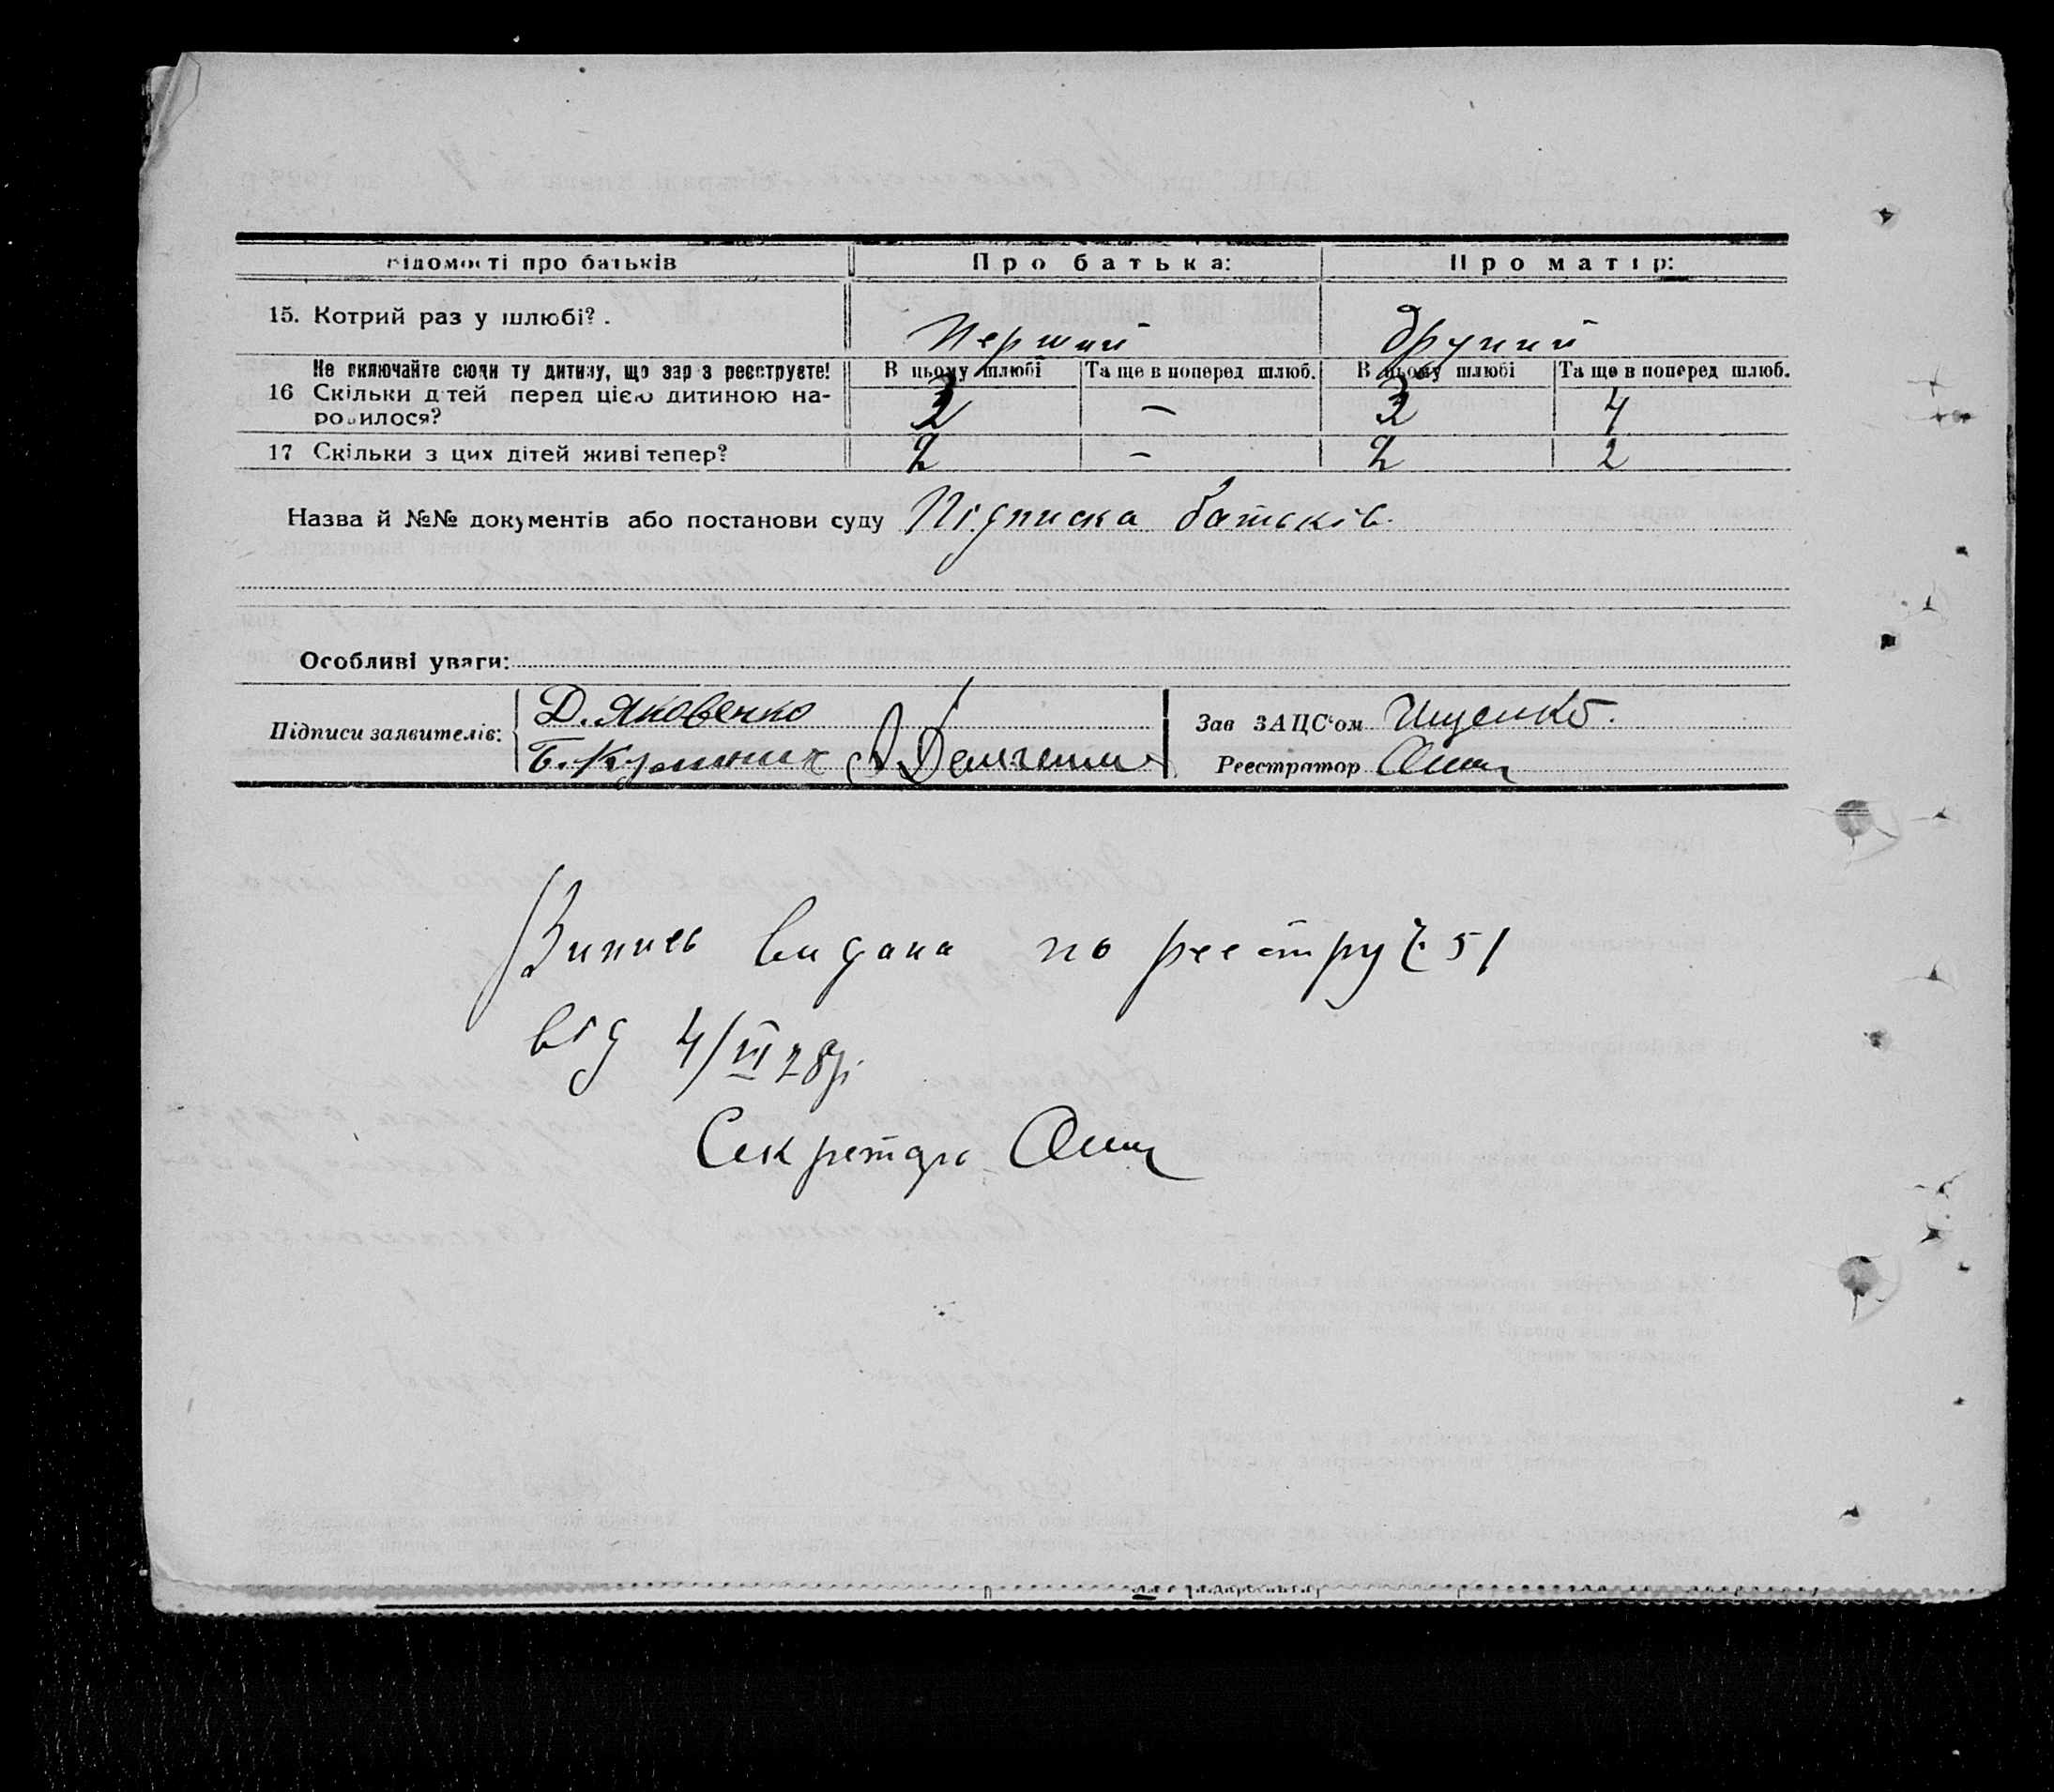 Відомості про батьків Про батька: Про матір:
15. Котрий раз у шлюбі? Перший Другий
Не включайте сюди ту дитину, що зараз реєструєте! В цьому шлюбі Та ще в поперед шлюб. В цьому шлюбі Та ще в поперед шлюб.
16 Скільки дітей перед цією дитиною на-
родилося? 3 — 3 4
17 Скільки з цих дітей живі тепер? 2 — 2 2
Назва й №№ документів або постанови суду Підписка батьків.
Особливі уваги:
Підписи заявителів: Д. Яковенко
Зав ЗАЦС'ом Ищенко.
Реєстратор
Випись видана по реєстру 51
від 4/III 28р.
Секретарь